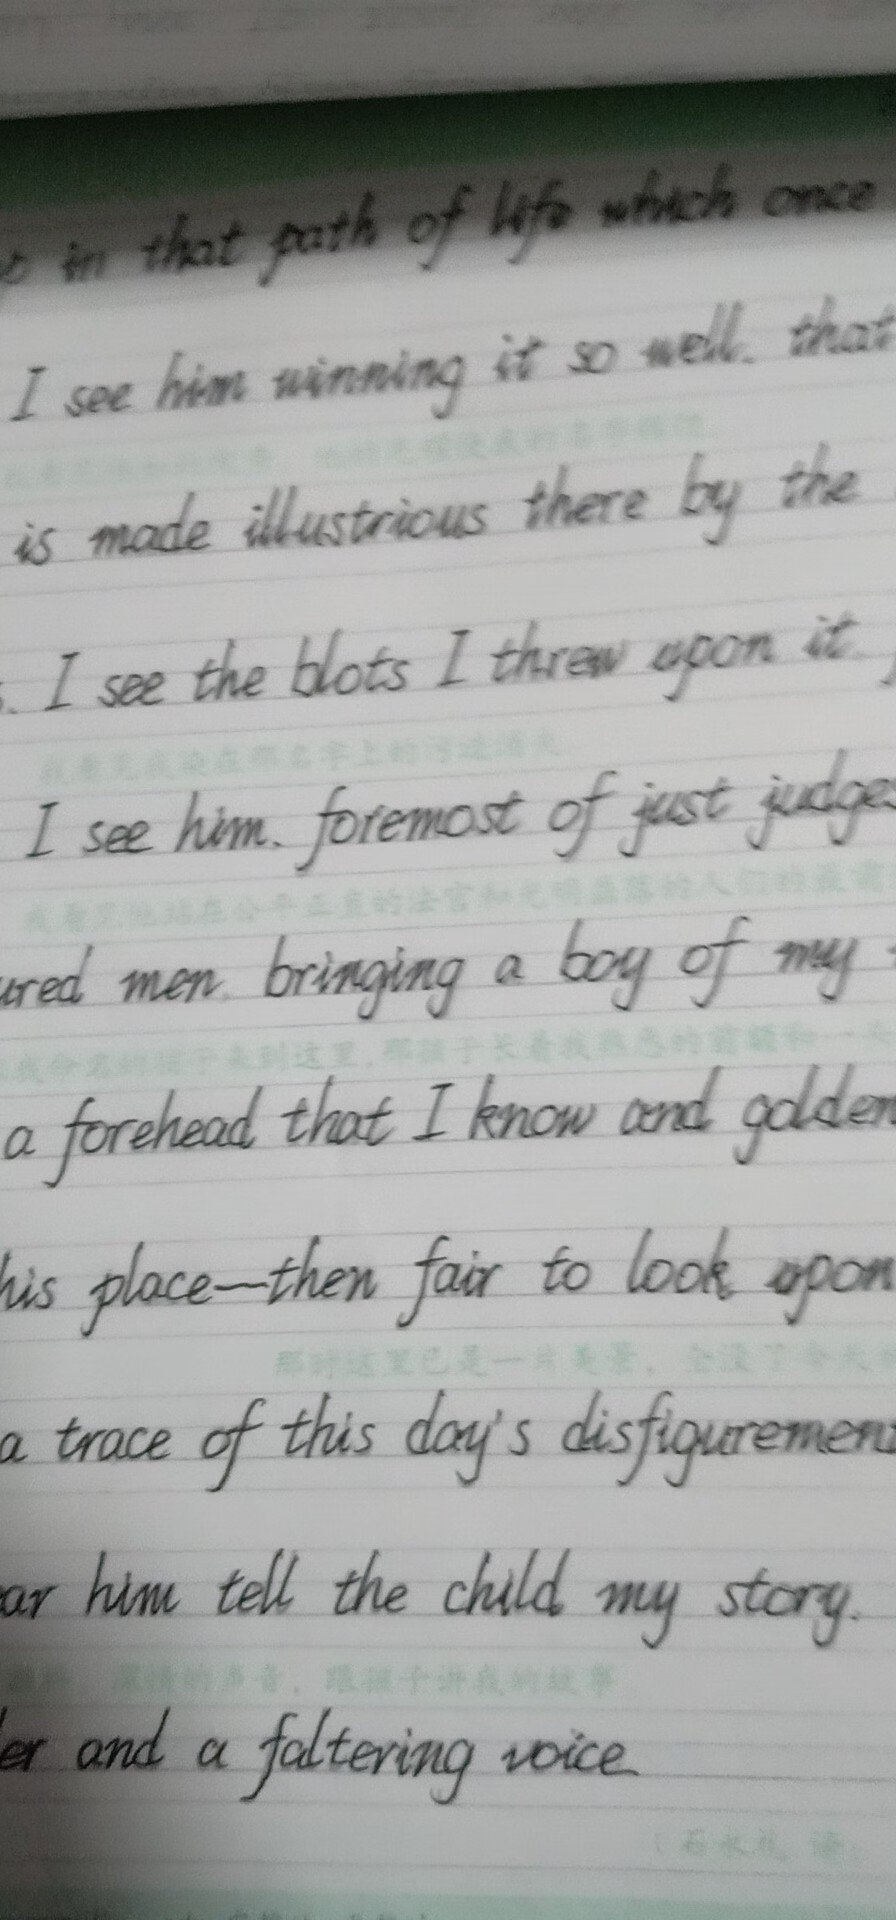 in that path of life which once
I see him winning it so well. that
is made illustrious there by the
I see the blots I threw upon it
我看见我染在那名字上的污迹消失
I see him. foremost of just judges
我看见他站在公平正直的法官和光明磊落的人们的
ured men. bringing a boy of my
a forehead that I know and golden
his place—then fair to look upon
那时这里已是一片美景，全没了今天
a trace of this day's disfigurement
ar him tell the child my story.
的声音，跟孩子讲我的故事
er and a faltering voice